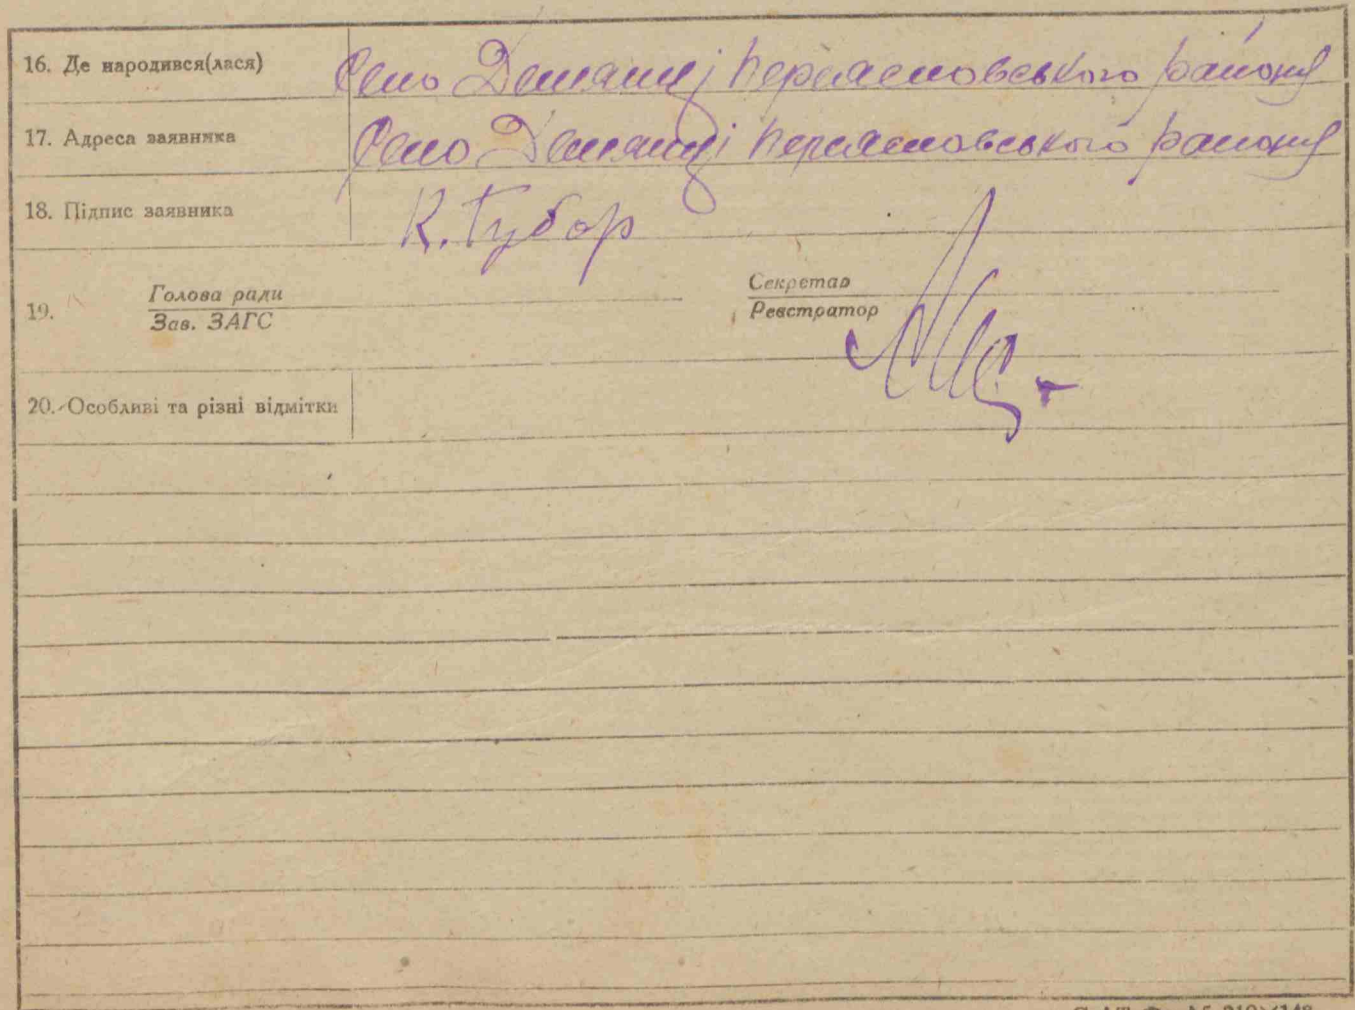 16. Де народився(лася) Село Демянці Переяславського району
17. Адреса заявника Село Демянці Переяславського району
18. Підпис заявника К. Губор
Голова ради Секретар
19. Зав. ЗАГС Реєстратор
20. Особливі та різні відмітки